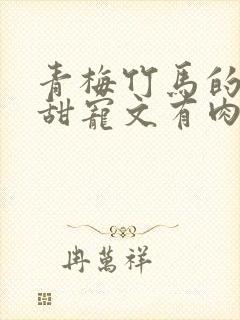 青梅竹马的
甜寵文有肉
冉萬祥